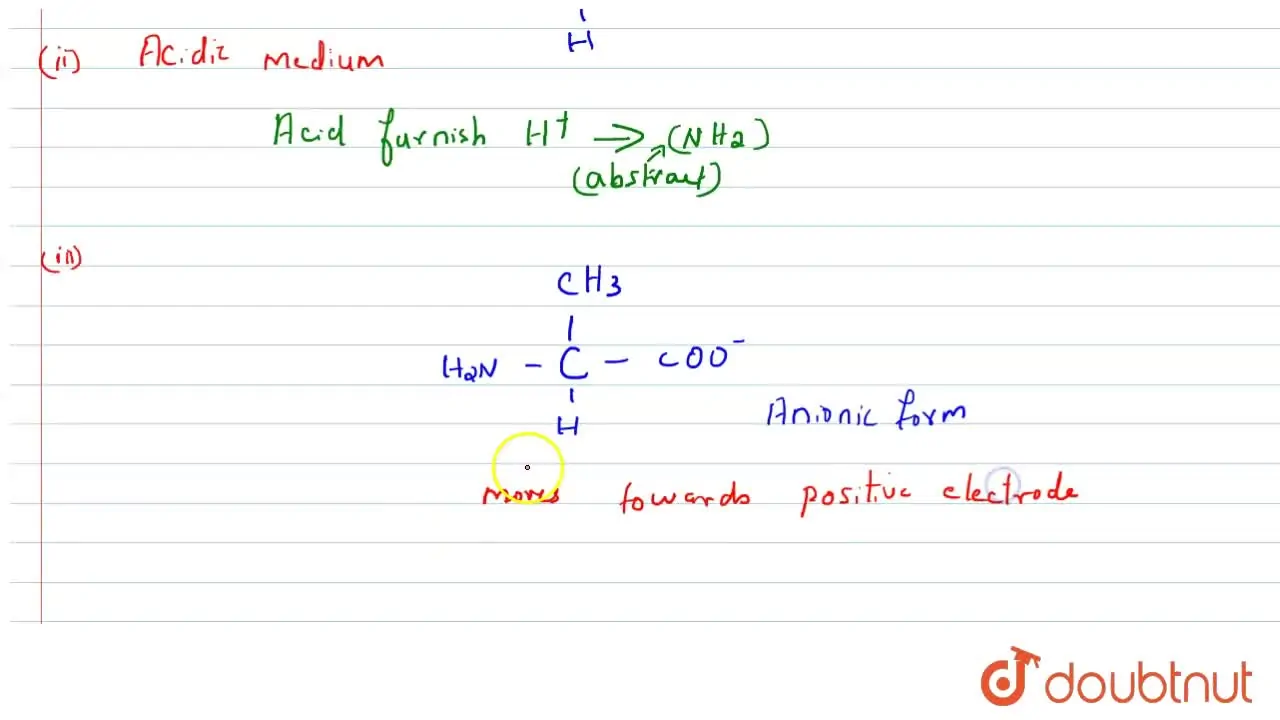 H
(ii) Acidic medium
Acid furnish H⁺ → (NH2)
(abstract)
(iii)
CH3
H2N - C - COO⁻
H
Anionic form
moves towards positive electrode
doubtnut